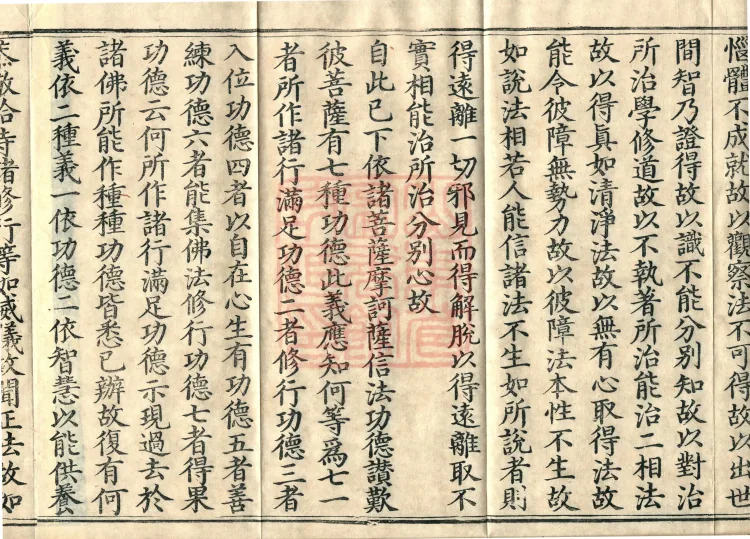 惱體不成就故以觀察法不可得故以出世
間智乃證得故以識不能分別知故以對治
所治學修道故以不執著所治能治二相法
故以得眞如清淨法故以無有心取得法故
能令彼障無勢力故以彼障法本性不生故
如說法相若人能信諸法不生如所說者則
得遠離一切邪見而得解脫以得遠離取不
實相能治所治分別心故
自此已下依諸菩薩摩訶薩信法功德讃歎
彼菩薩有七種功德此義應知何等爲七一
者所作諸行滿足功德二者修行功德三者
入位功德四者以自在心生有功德五者善
練功德六者能集佛法修行功德七者得果
功德云何所作諸行滿足功德示現過去於
諸佛所能作種種功德皆悉已辦故復有何
義依二種義一依功德二依智慧以能供養
恭敬給侍諸修行等如威儀故聞正法故如